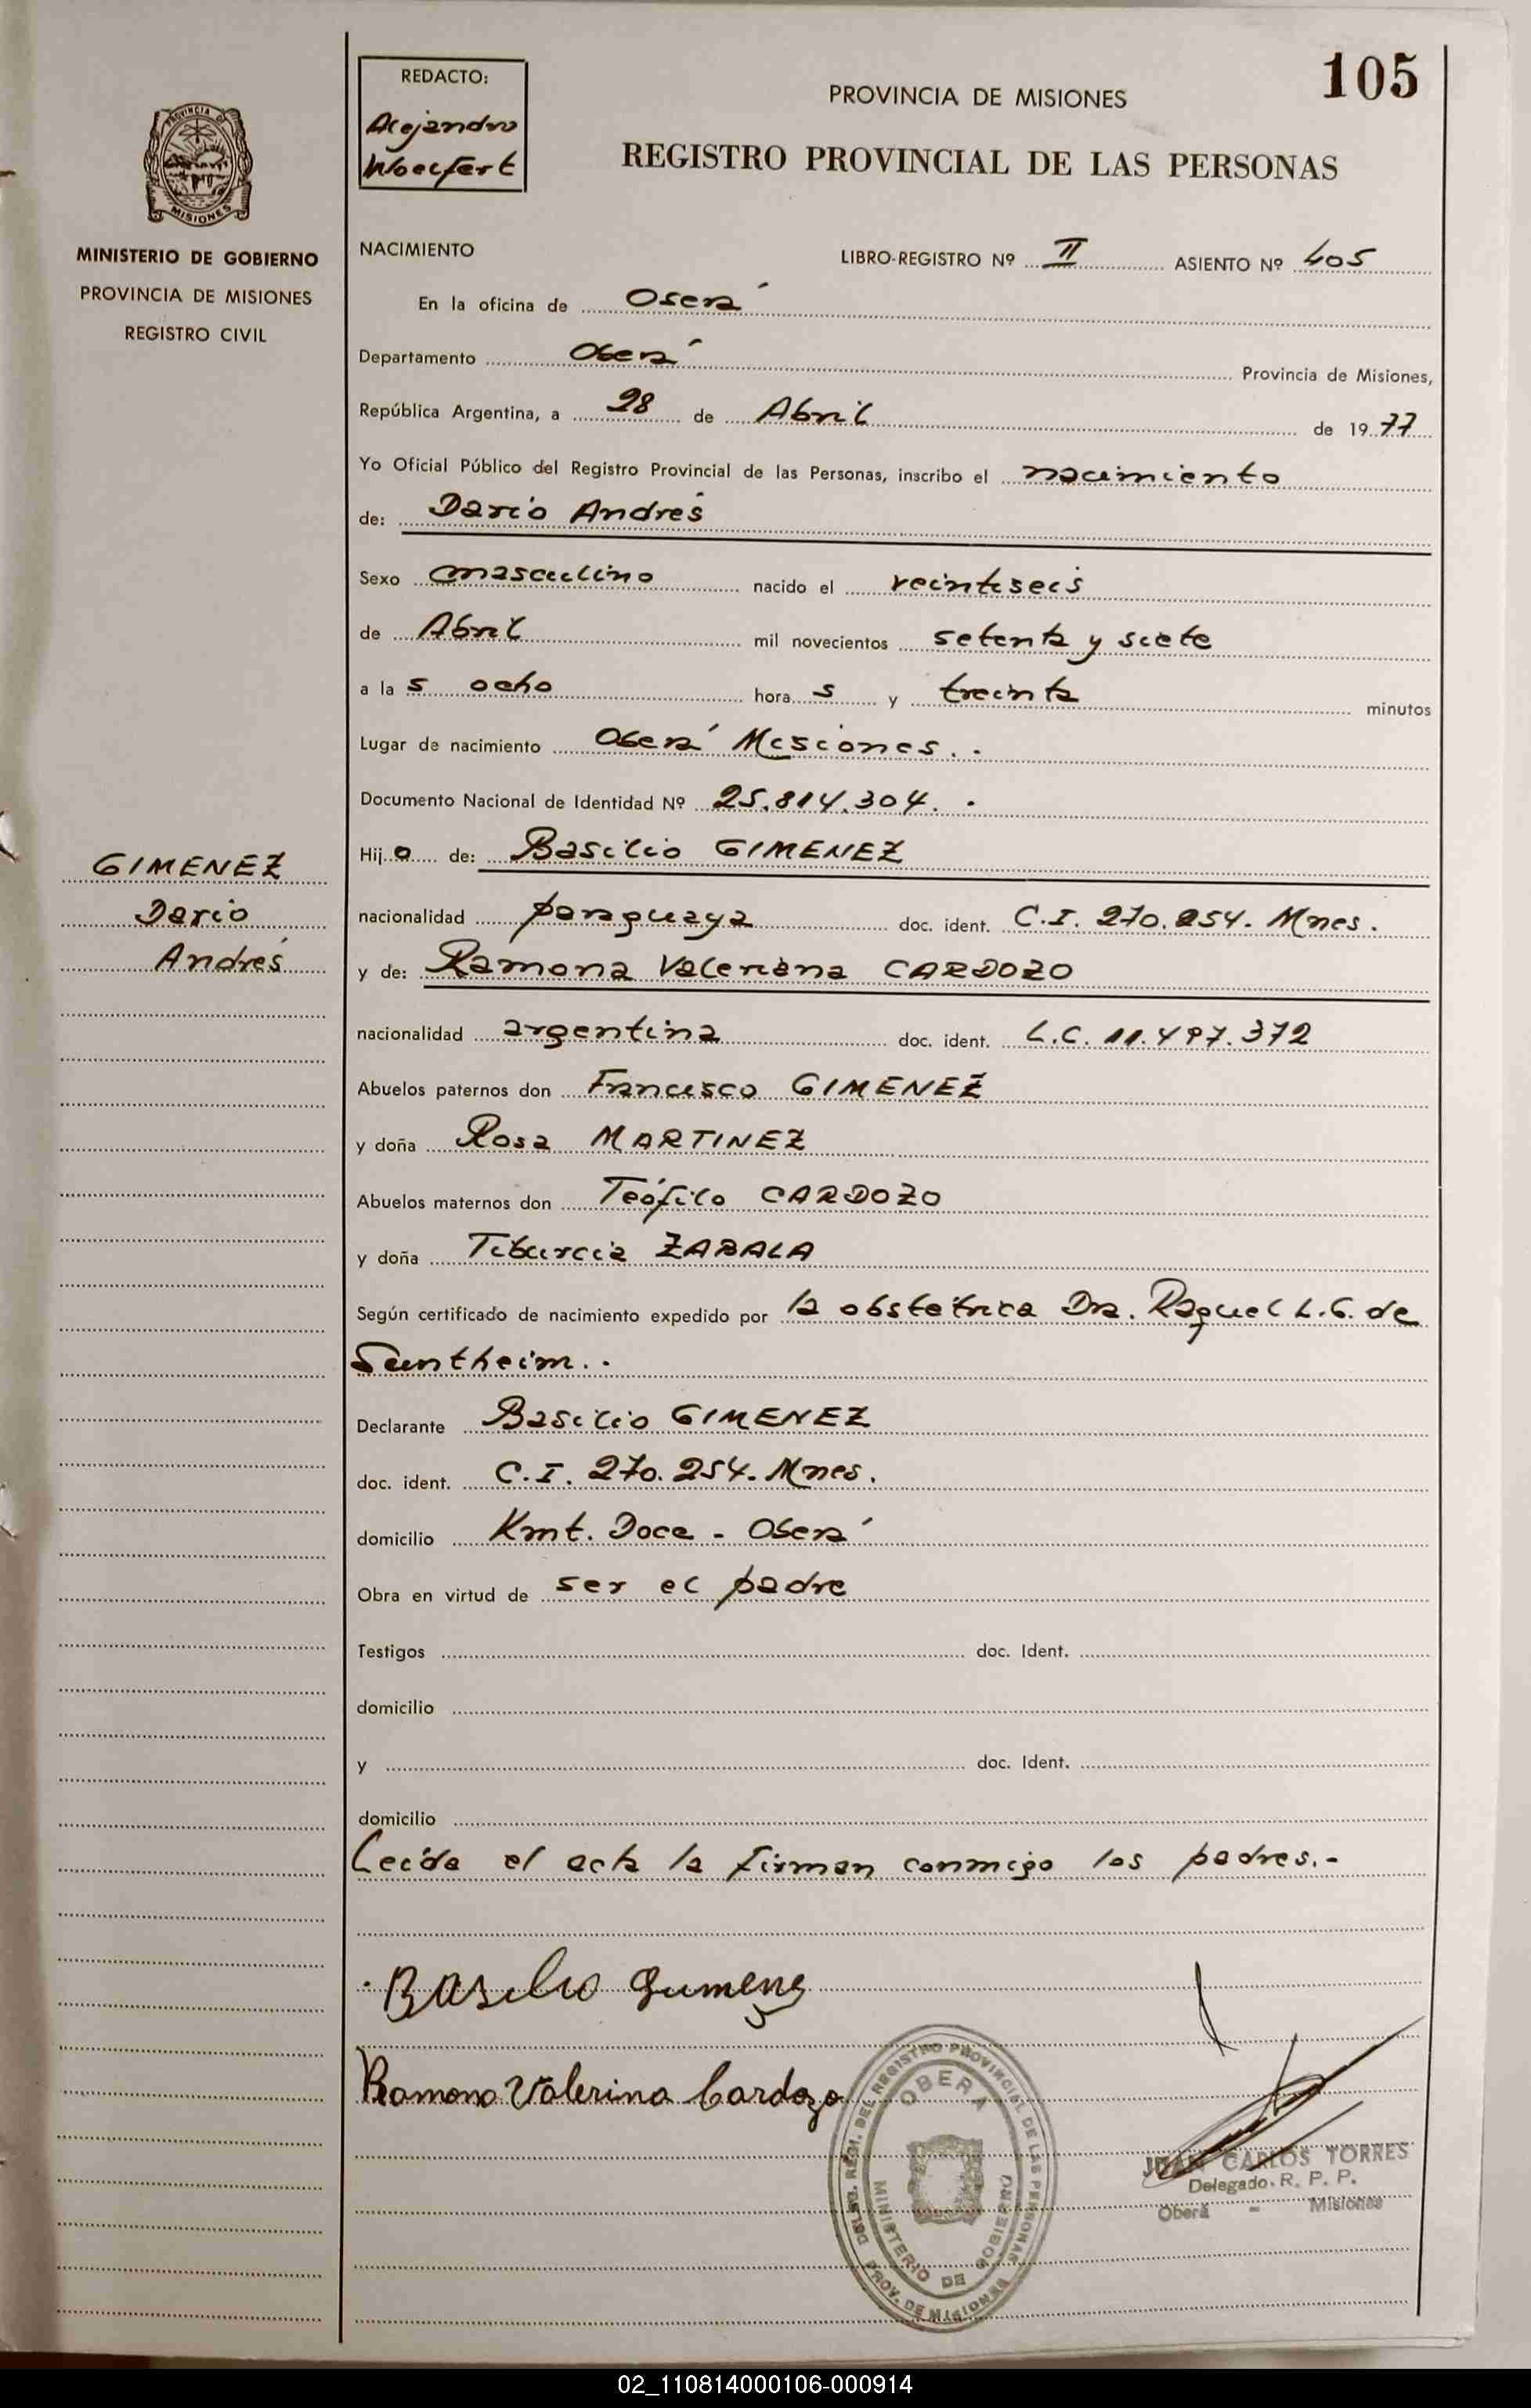 105
REDACTO:
Alejandro
Woelfert
PROVINCIA DE MISIONES
REGISTRO PROVINCIAL DE LAS PERSONAS
PROVINCIA DE
MISIONES
MINISTERIO DE GOBIERNO
PROVINCIA DE MISIONES
REGISTRO CIVIL
NACIMIENTO
LIBRO-REGISTRO Nº II ASIENTO Nº 405
En la oficina de Oberá
Departamento Oberá Provincia de Misiones,
República Argentina, a 28 de Abril de 1977
Yo Oficial Público del Registro Provincial de las Personas, inscribo el nacimiento
de: Darío Andrés
Sexo masculino nacido el veintiseis
de Abril mil novecientos setenta y siete
a las ocho horas y treinta minutos
Lugar de nacimiento Oberá Misiones. .
Documento Nacional de Identidad Nº 25.814.304. .
GIMENEZ
Darío
Andrés
Hijo de: Basilio GIMENEZ
nacionalidad paraguaya doc. ident. C.I. 270.254. Mnes.
y de: Ramona Valeriana CARDOZO
nacionalidad argentina doc. ident. L.C. 11.497.372
Abuelos paternos don Francisco GIMENEZ
y doña Rosa MARTINEZ
Abuelos maternos don Teófilo CARDOZO
y doña Tiburcia ZABALA
Según certificado de nacimiento expedido por la obstétrica Dra. Raquel L.G. de
Suntheim. .
Declarante Basilio GIMENEZ
doc. ident. C.I. 270.254. Mnes.
domicilio Kmt. Doce - Oberá
Obra en virtud de ser el padre
Testigos doc. Ident.
domicilio
y doc. Ident.
domicilio
Leída el acta la firman conmigo los padres.-
Basilio Gimenez
Ramona Valerina Cardozo
OBERA
MINISTERIO DE GOBIERNO
JUAN CARLOS TORRES
Delegado R. P. P.
Oberá - Misiones
02_110814000106-000914